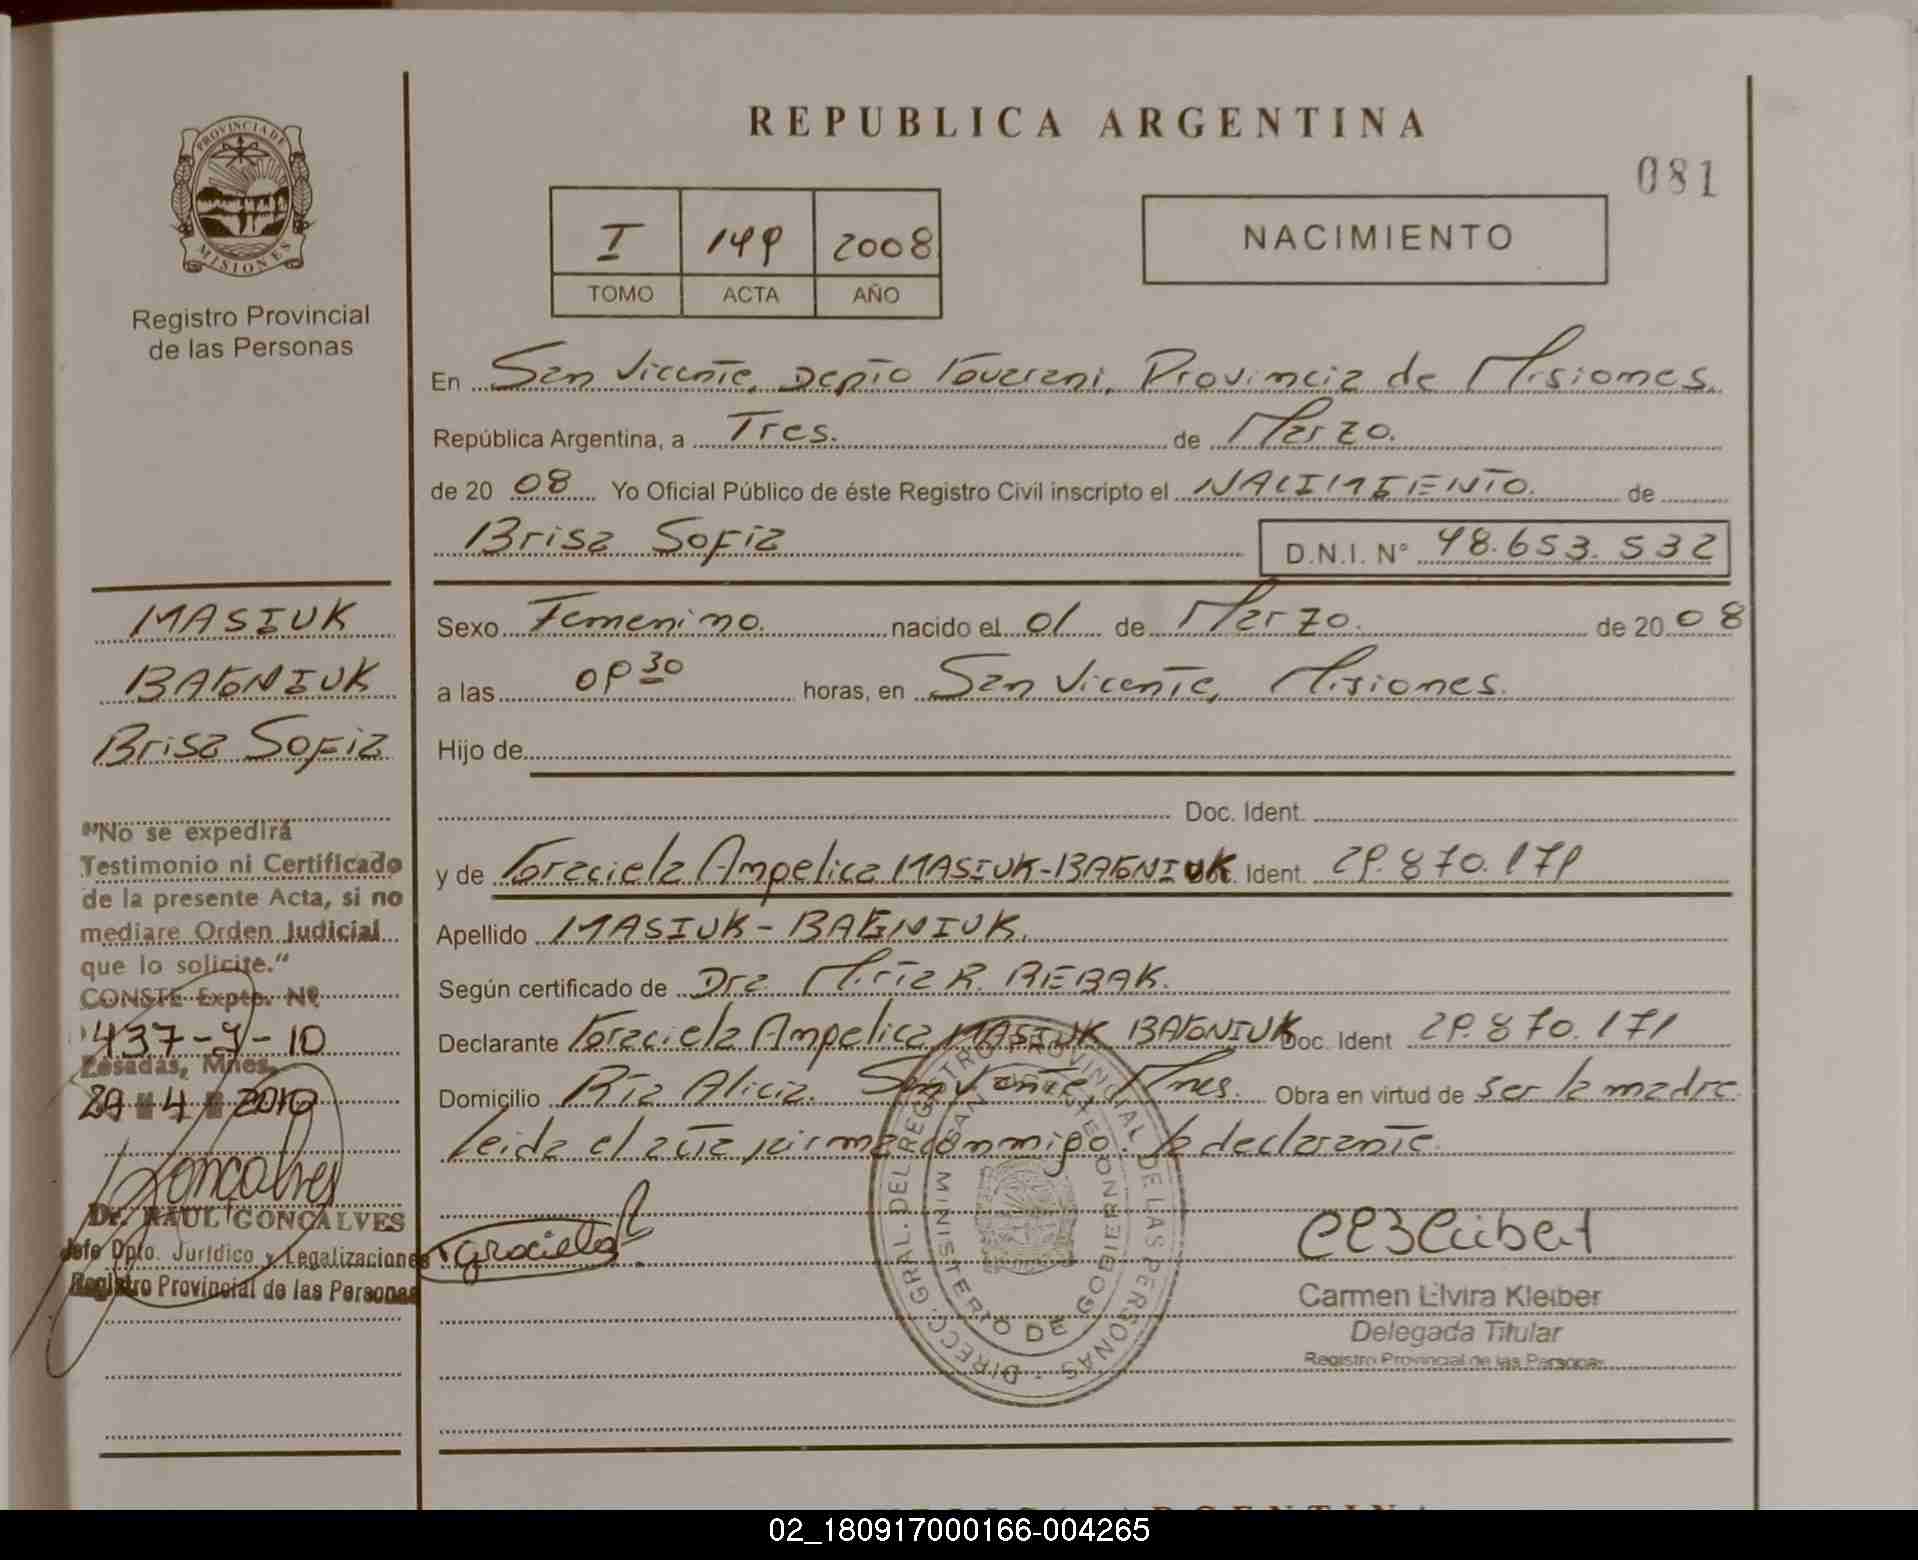 REPUBLICA ARGENTINA
081
PROVINCIA DE
MISIONES
Registro Provincial
de las Personas
I 149 2008
TOMO ACTA AÑO
NACIMIENTO
En San Vicente, Depto Guarani, Provincia de Misiones.
República Argentina, a Tres. de Marzo.
de 20 08 Yo Oficial Público de éste Registro Civil inscripto el NACIMIENTO. de
Brisa Sofia D.N.I. N° 48.653.532
MASIUK
BAGNIUK
Brisa Sofia
Sexo Femenino. nacido el 01 de Marzo. de 20 08
a las 09 30 horas, en San Vicente, Misiones.
Hijo de
Doc. Ident.
y de Graciela Angelica MASIUK-BAGNIUK Doc. Ident. 29.870.171
Apellido MASIUK-BAGNIUK.
Según certificado de Dra. R. REBAK.
Declarante Graciela Angelica MASIUK BAGNIUK Doc. Ident 29.870.171
Domicilio Pta Alicia. San Vicente, Mnes. Obra en virtud de ser la madre
leida el acta firma conmigo. la declarante.
"No se expedirá
Testimonio ni Certificado
de la presente Acta, si no
mediare Orden Judicial
que lo solicite."
CONSTE Expte. Nº
437-J-10
Posadas, Mnes.
29 4 2010
Goncalves
Dr. RAUL GONCALVES
Jefe Dpto. Jurídico y Legalizaciones
Registro Provincial de las Personas
Graciela
DIRECC. GRAL. DEL REGISTRO PROVINCIAL DE LAS PERSONAS
MINISTERIO DE GOBIERNO
SAN VICENTE
Carmen Elvira Kleiber
Delegada Titular
Registro Provincial de las Personas
02_180917000166-004265